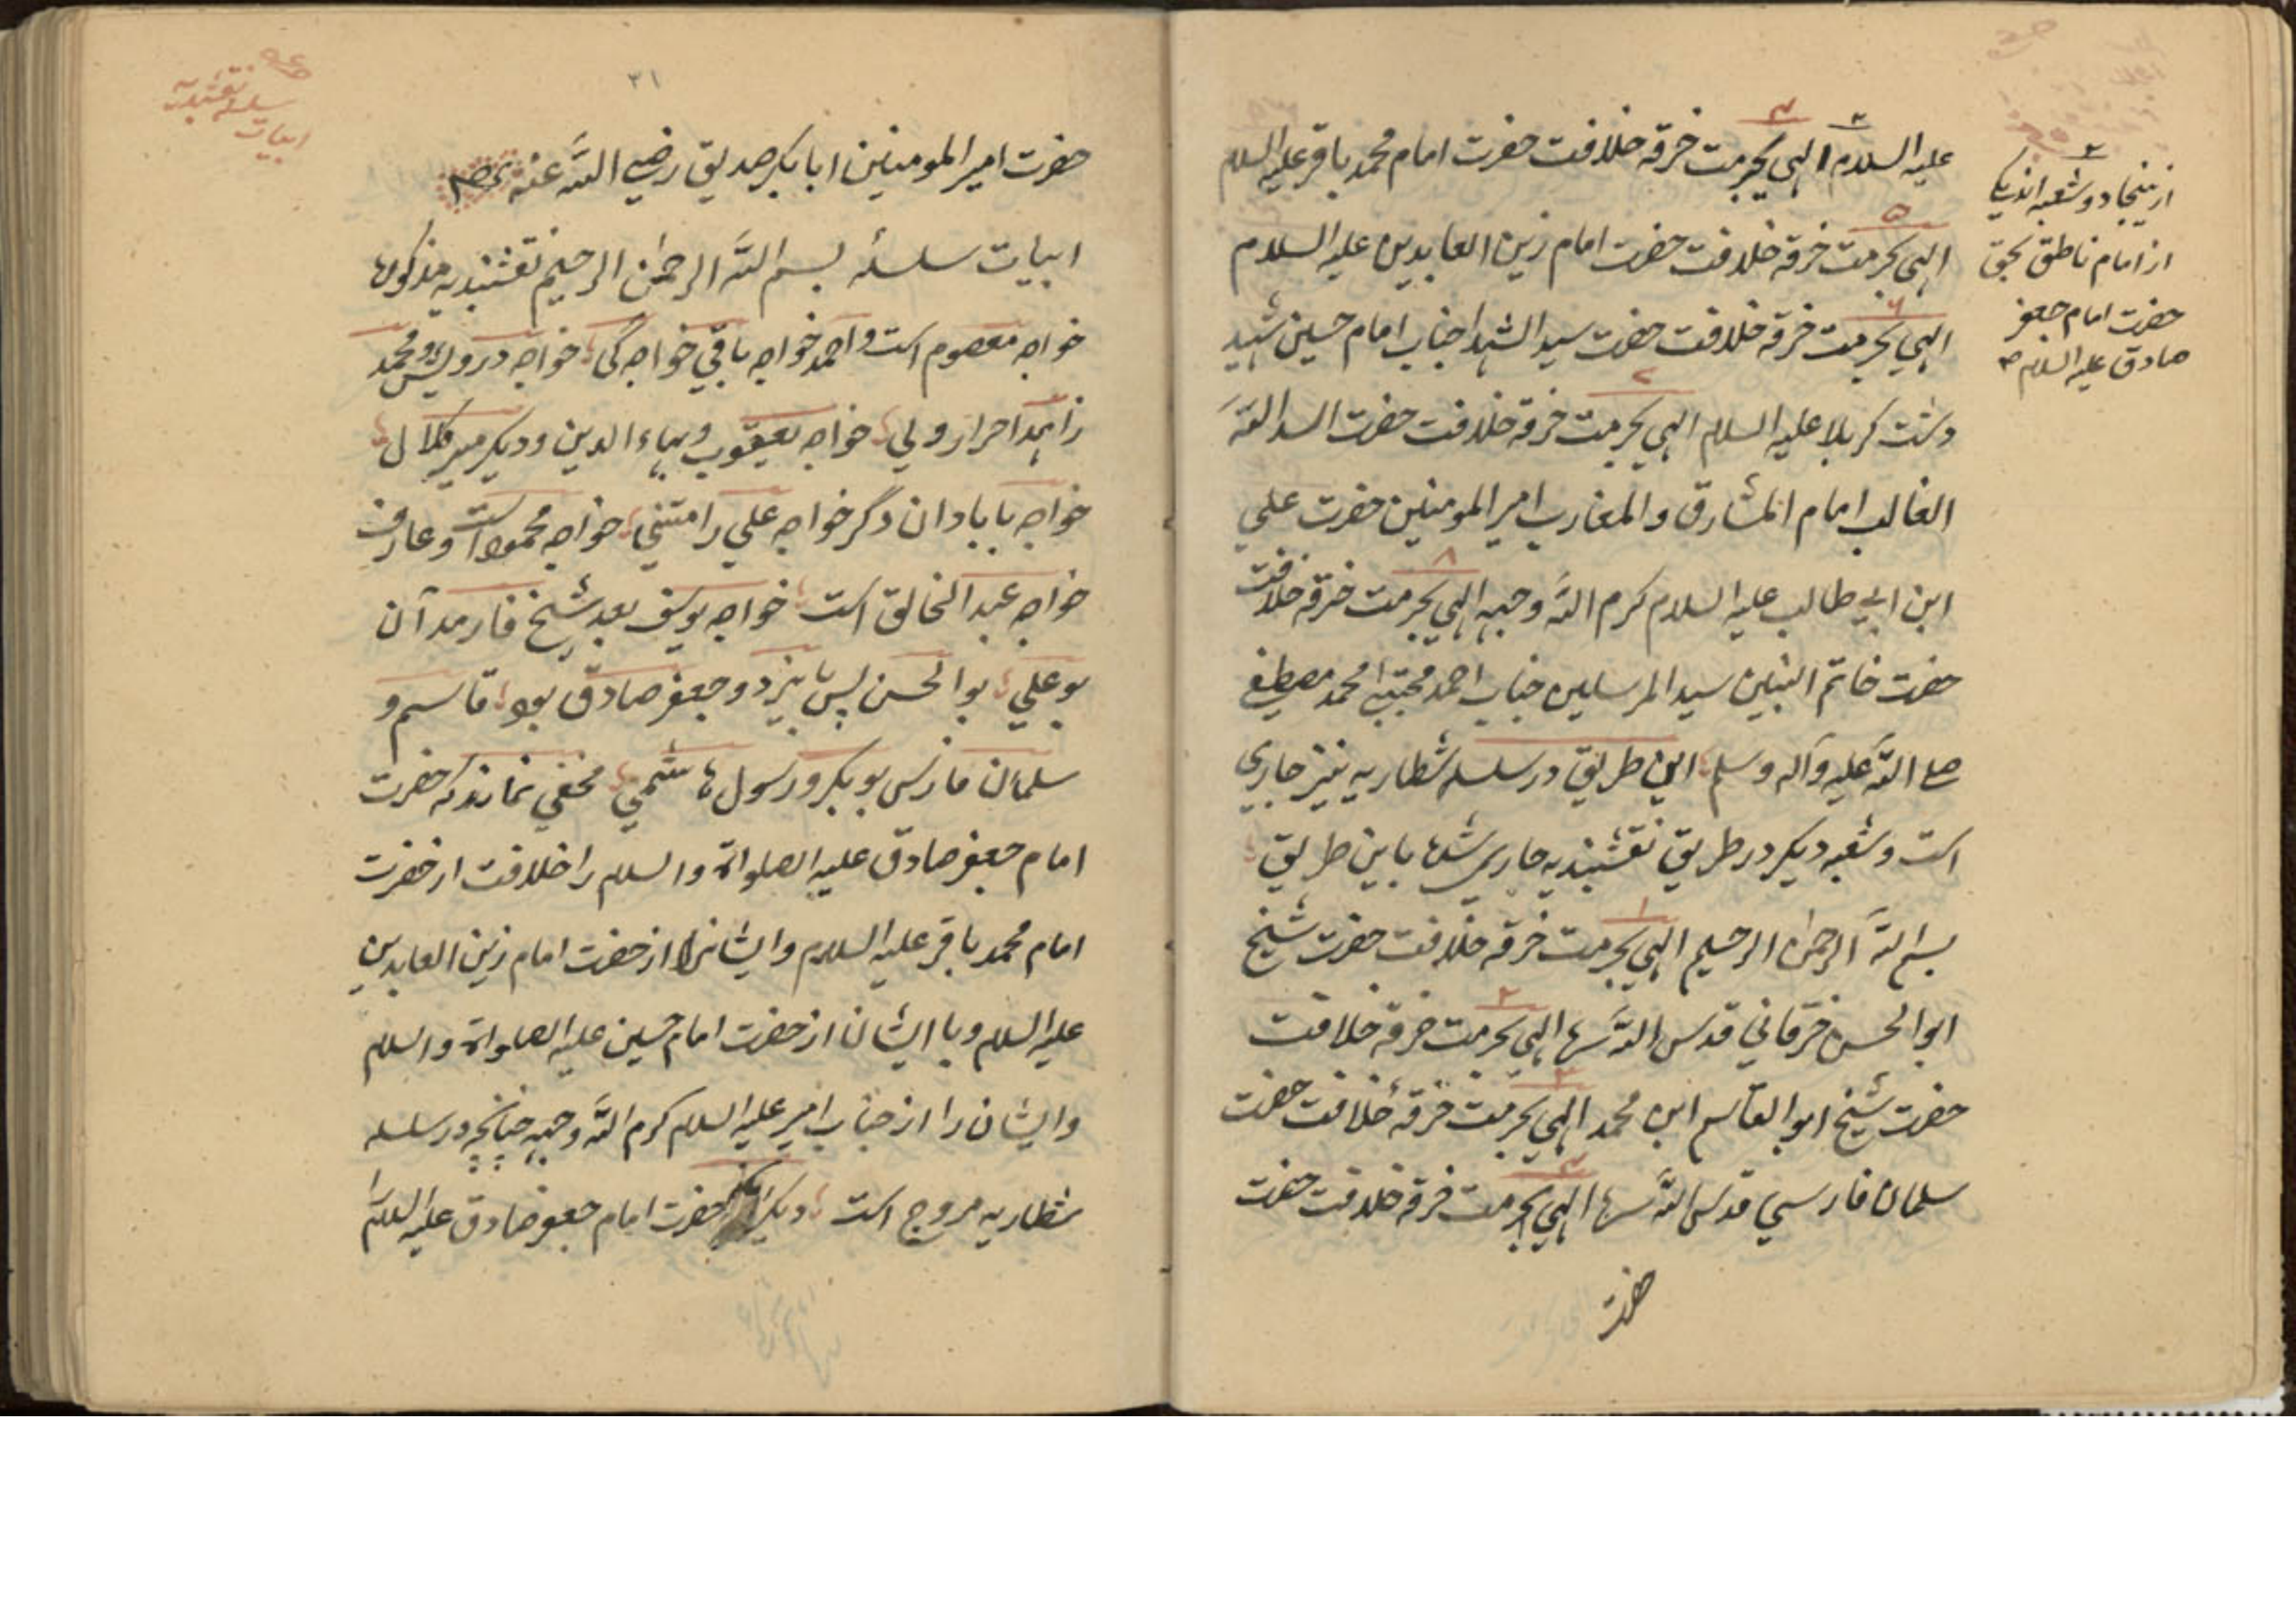 علیه السلام الهی بحرمت خرقه خلافت حضرت امام محمد باقر علیه السلام
الهی بحرمت خرقه خلافت حضرت امام زین العابدین علیه السلام
الهی بحرمت خرقه خلافت حضرت سید الشهدا جناب امام حسین شهید
دشت کربلا علیه السلام الهی بحرمت خرقه خلافت حضرت اسد الله
الغالب امام المشارق والمغارب امیر المومنین حضرت علی
ابن ابی طالب علیه السلام کرم الله وجهه الهی بحرمت خرقه خلافت
حضرت خاتم النبین سید المرسلین جناب احمد مجتبی محمد مصطفی
صلی الله علیه وآله وسلم این طریق در سلسله شطاریه نیز جاری
است و شعبه دیکر در طریق نقشبندیه جاری شده باین طریق
بسم الله الرحمن الرحیم الهی بحرمت خرقه خلافت حضرت شیخ
ابوالحسن خرقانی قدس الله سره الهی بحرمت خرقه خلافت
حضرت شیخ ابوالقاسم ابن محمد الهی بحرمت خرقه خلافت حضرت
سلمان فارسی قدس الله سره الهی بحرمت خرقه خلافت حضرت
حضرت
۲
از ینجا دو شعبه اند یکی
از امام ناطق بحق
حضرت امام جعفر
صادق علیه السلام
۳۱
سلسله نقشبندیه
ابیات
حضرت امیر المومنین ابابکر صدیق رضی الله عنه
ابیات سلسله بسم الله الرحمن الرحیم نقشبندیه مذکوره
خواجه معصوم است و احمد خواجه باقی خواجه گی خواجه درویش و محمد
زاهد احرار ولی خواجه یعقوب و بهاء الدین و دیکر میر کلال
خواجه بابا دان دگر خواجه علی رامتنی خواجه محمود است و عارف
خواجه عبد الخالق است خواجه یوسف بعد شیخ فارمد آن
بو علی بوالحسن پس بایزید و جعفر صادق بود قاسم و
سلمان فارس بوبکر و رسول هاشمی مخفی نماند که حضرت
امام جعفر صادق علیه الصلواة والسلام را خلافت از حضرت
امام محمد باقر علیه السلام و ایشانرا از حضرت امام زین العابدین
علیه السلام و با ایشان از حضرت امام حسین علیه الصلواة والسلام
و ایشان را از جناب امیر علیه السلام کرم الله وجهه چنانچه در سلسله
شطاریه مروج است دیکر حضرت امام جعفر صادق علیه السلام را